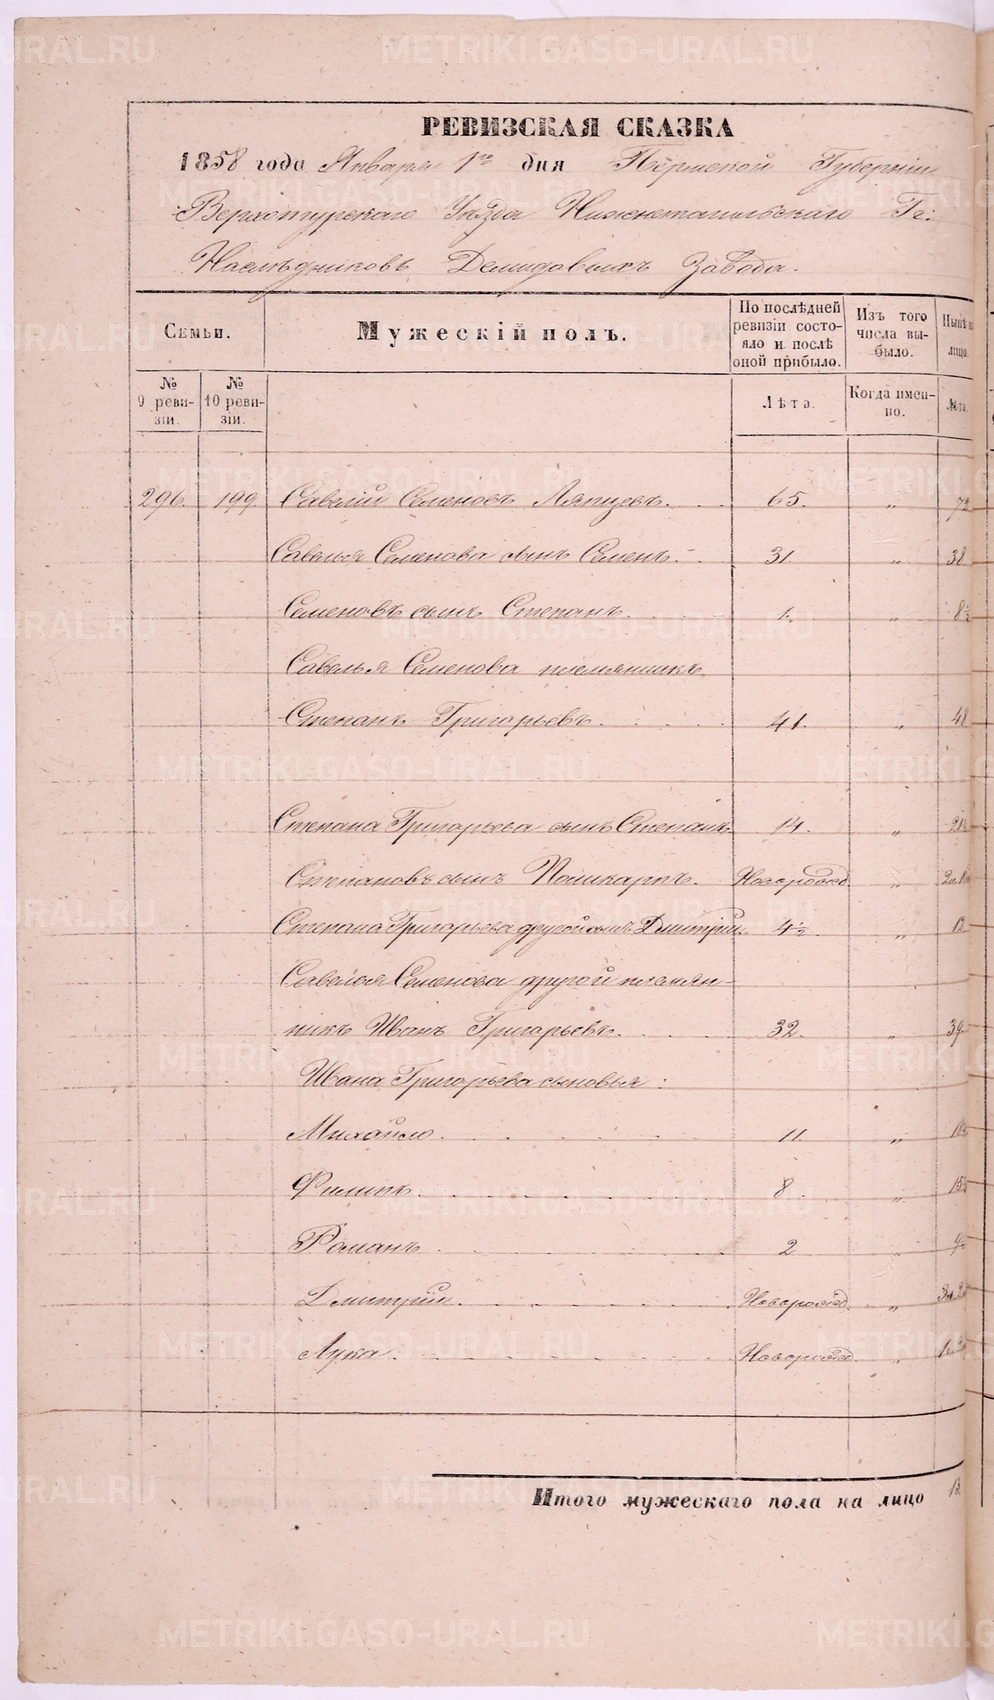 РЕВИЗСКАЯ СКАЗКА
1858 года Января 1го дня Пермской Губернии
Верхотурскаго Уезда Нижнетагильскаго Гг:
Наследниковъ Демидовыхъ Завода.
Семьи.
Мужескій полъ.
По послѣдней ревизіи состояло и послѣ оной прибыло.
Изъ того числа выбыло.
Нынѣ на лицо.
№ 9 ревизіи.
№ 10 ревизіи.
Лѣта.
Когда именно.
Лѣта.
296. 199. Савелій Семеновъ Ляпцевъ. 65. „ 72
Савелья Семенова сынъ Семенъ. 31. „ 38
Семеновъ сынъ Степанъ. 1. „ 8½
Савелья Семенова племянникъ
Степанъ Григорьевъ. 41. „ 48
Степана Григорьева сынъ Степанъ 14. „ 21½
Степановъ сынъ Поликарпъ. Новорожд „
Степана Григорьева другой сынъ Дмитрій 4½. „
Савелья Семенова другой племян-
никъ Иванъ Григорьевъ. 32. „ 39.
Ивана Григорьева сыновья:
Михайло. 11. „
Филипъ. 8. „ 15½
Романъ. 2 „ 9½
Дмитрій. Новорожд „
Лука. Новорожд. „
Итого мужескаго пола на лицо 13.
METRIKI.GASO-URAL.RU